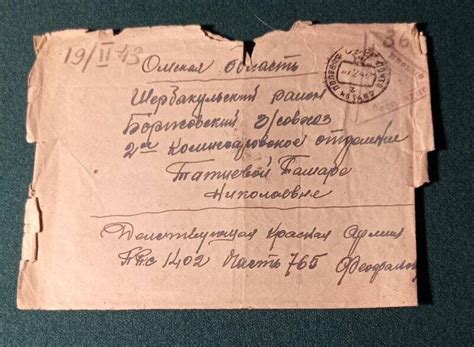 19/II 43
36
Омская область
Шербакульский район
Борисовский з/совхоз
2ое Комиссаровское отделение
Татиевой Тамаре
Николаевне
Действующая Красная Армия
ППС 1402 Часть 765